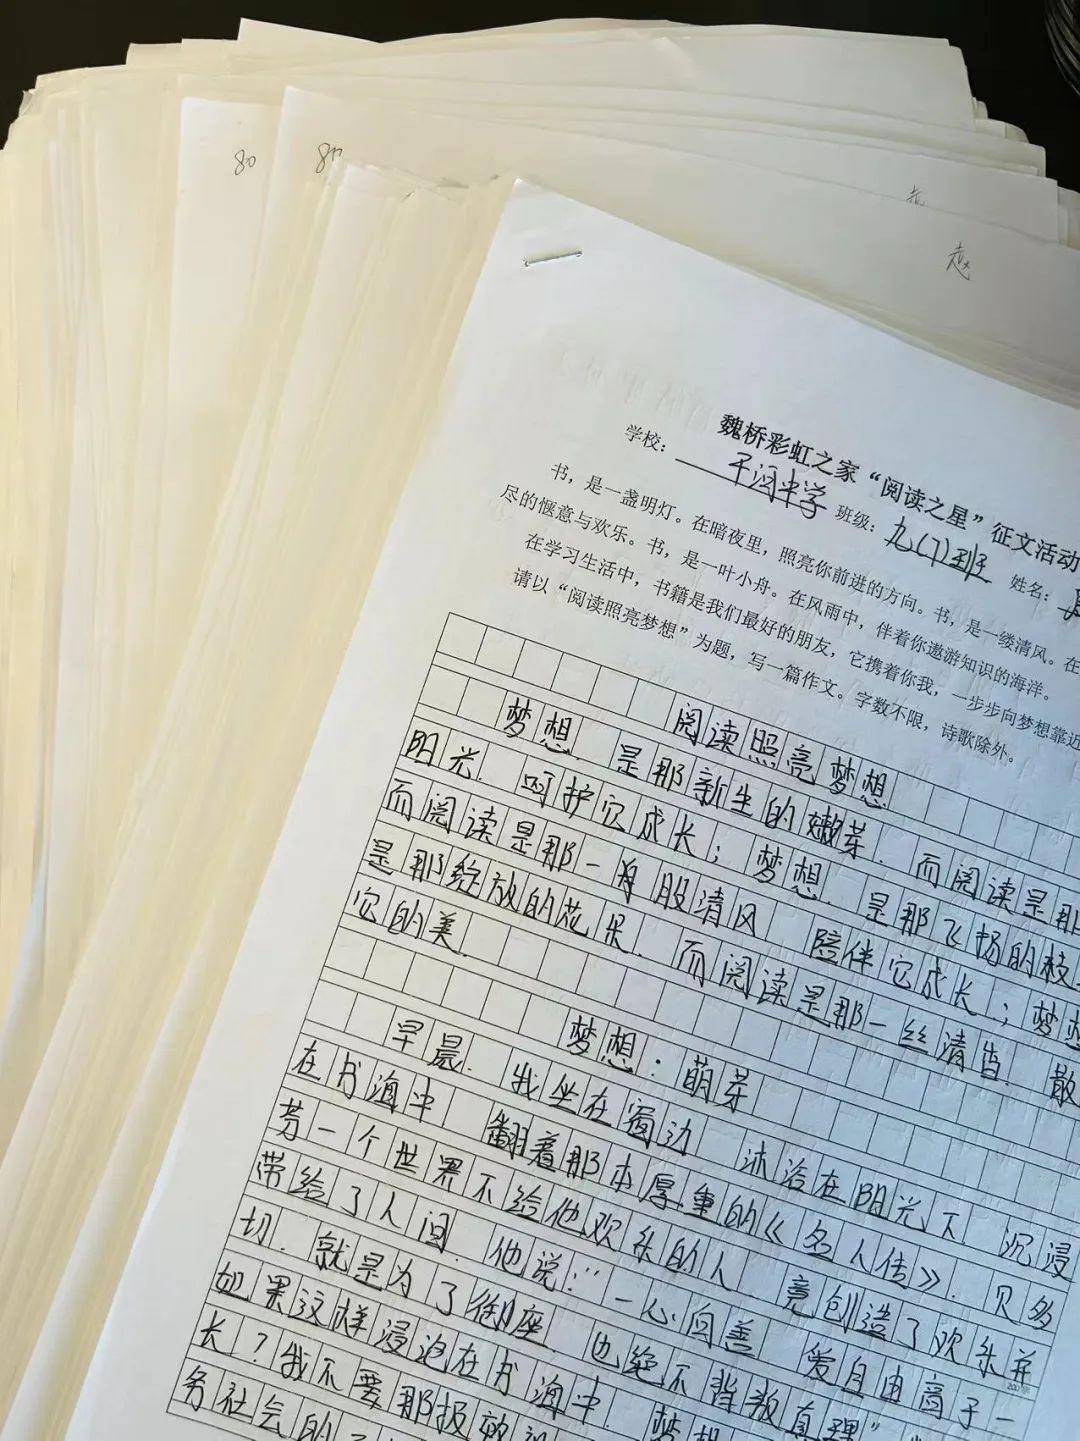 80
赵
魏桥彩虹之家“阅读之星”征文活动
学校：
中学 班级：九(7)班 姓名：
书，是一盏明灯。在暗夜里，照亮你前进的方向。书，是一缕清风。在
尽的惬意与欢乐。书，是一叶小舟。在风雨中，伴着你遨游知识的海洋。
在学习生活中，书籍是我们最好的朋友，它携着你我，一步步向梦想靠近
请以“阅读照亮梦想”为题，写一篇作文。字数不限，诗歌除外。
阅读照亮梦想
梦想，是那新生的嫩芽，而阅读是那
阳光，呵护它成长；梦想，是那飞扬的枝
而阅读是那一股清风 陪伴它成长；梦想
是那绽放的花朵，而阅读是那一丝清香，散
它的美
梦想：萌芽
早晨，我坐在窗边 沐浴在阳光下 沉浸
在书海中 翻着那本厚重的《名人传》，贝多
芬一个世界不给他欢乐的人 竟创造了欢乐并
带给了人间，他说：“一心向善 爱自由高于一
切，就是为了御座，也绝不背叛真理”
如果这样浸泡在书海中，梦想
长？我不要那
务社会的
200